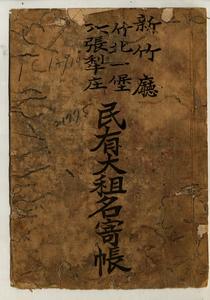 新竹廳
竹北一堡
六張犁庄
民有大租名寄帳